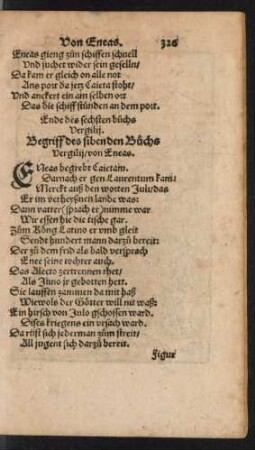 Von Eneas. 326
Eneas gieng zůn schiffen schnell
Vnd suchet wider sein geselln/
Da kam er gleich on alle not
Ans port da jetz Caieta stoht/
Vnd anckert ein am selben ort
Das die schiff stůnden an dem port.
Ende des sechsten bůchs
Vergilij.
Begriff des sibenden Bůchs
Vergilij/von Eneas.
ENeas begrebt Caietam.
Darnach er gen Laurentum kam/
Merckt auß den worten Juli/das
Er im verheyßnen lande was:
Dann vatter (sprach er) nimme war
Wir essen hie die tische gar.
Zům Köng Latino er vmb gleit
Sendt hundert mann darzů bereit:
Der zů dem frid als bald versprach
Enee seine tochter auch.
Das Alecto zertrennen thet/
Als Juno jr gebotten hett.
Sie lauffen zammen da mit haß
Wiewols der Götter will nit waß:
Ein hirsch von Julo gschossen ward.
Dises kriegens ein vrsach ward.
Da růst sich jederman zům streit/
All jugent sich darzů bereit.
Figur